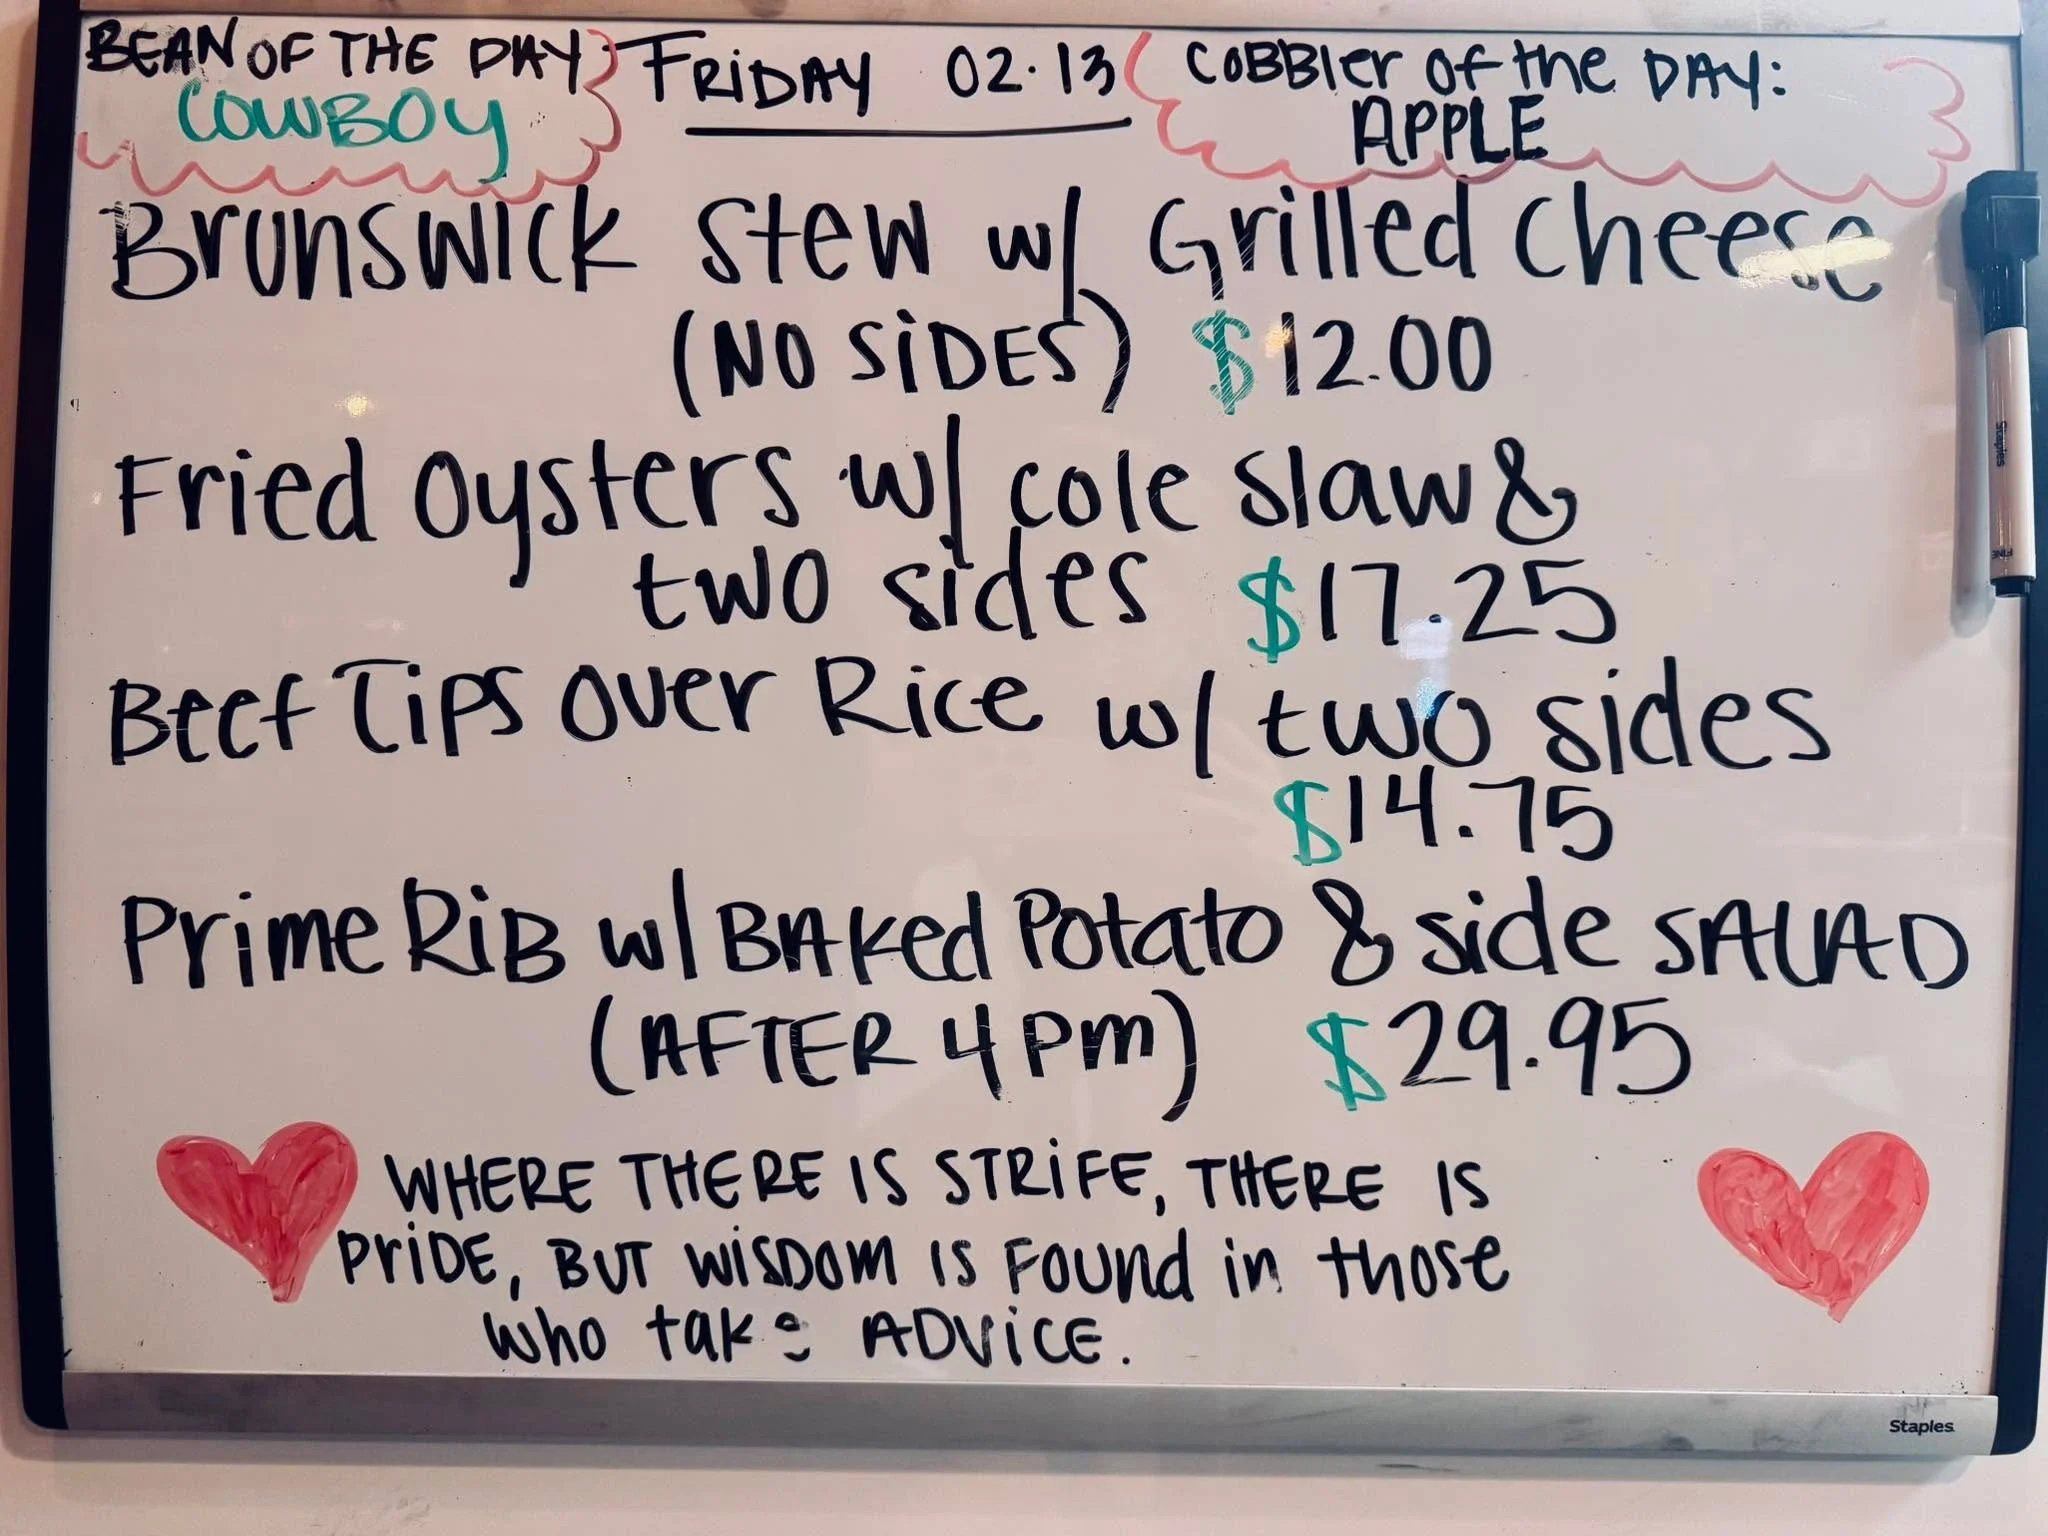 BEAN OF THE DAY
COWBOY
FRIDAY 02.13
COBBLER OF THE DAY:
APPLE
Brunswick Stew w/ Grilled Cheese
(NO SIDES) $12.00
Fried Oysters w/ cole slaw &
two sides $17.25
Beef Tips Over Rice w/ two sides
$14.75
Prime Rib w/ Baked Potato & side SALAD
(AFTER 4 PM) $29.95
WHERE THERE IS STRIFE, THERE IS
PRIDE, BUT WISDOM IS FOUND in those
who take ADVICE.
Staples
FINE
Staples